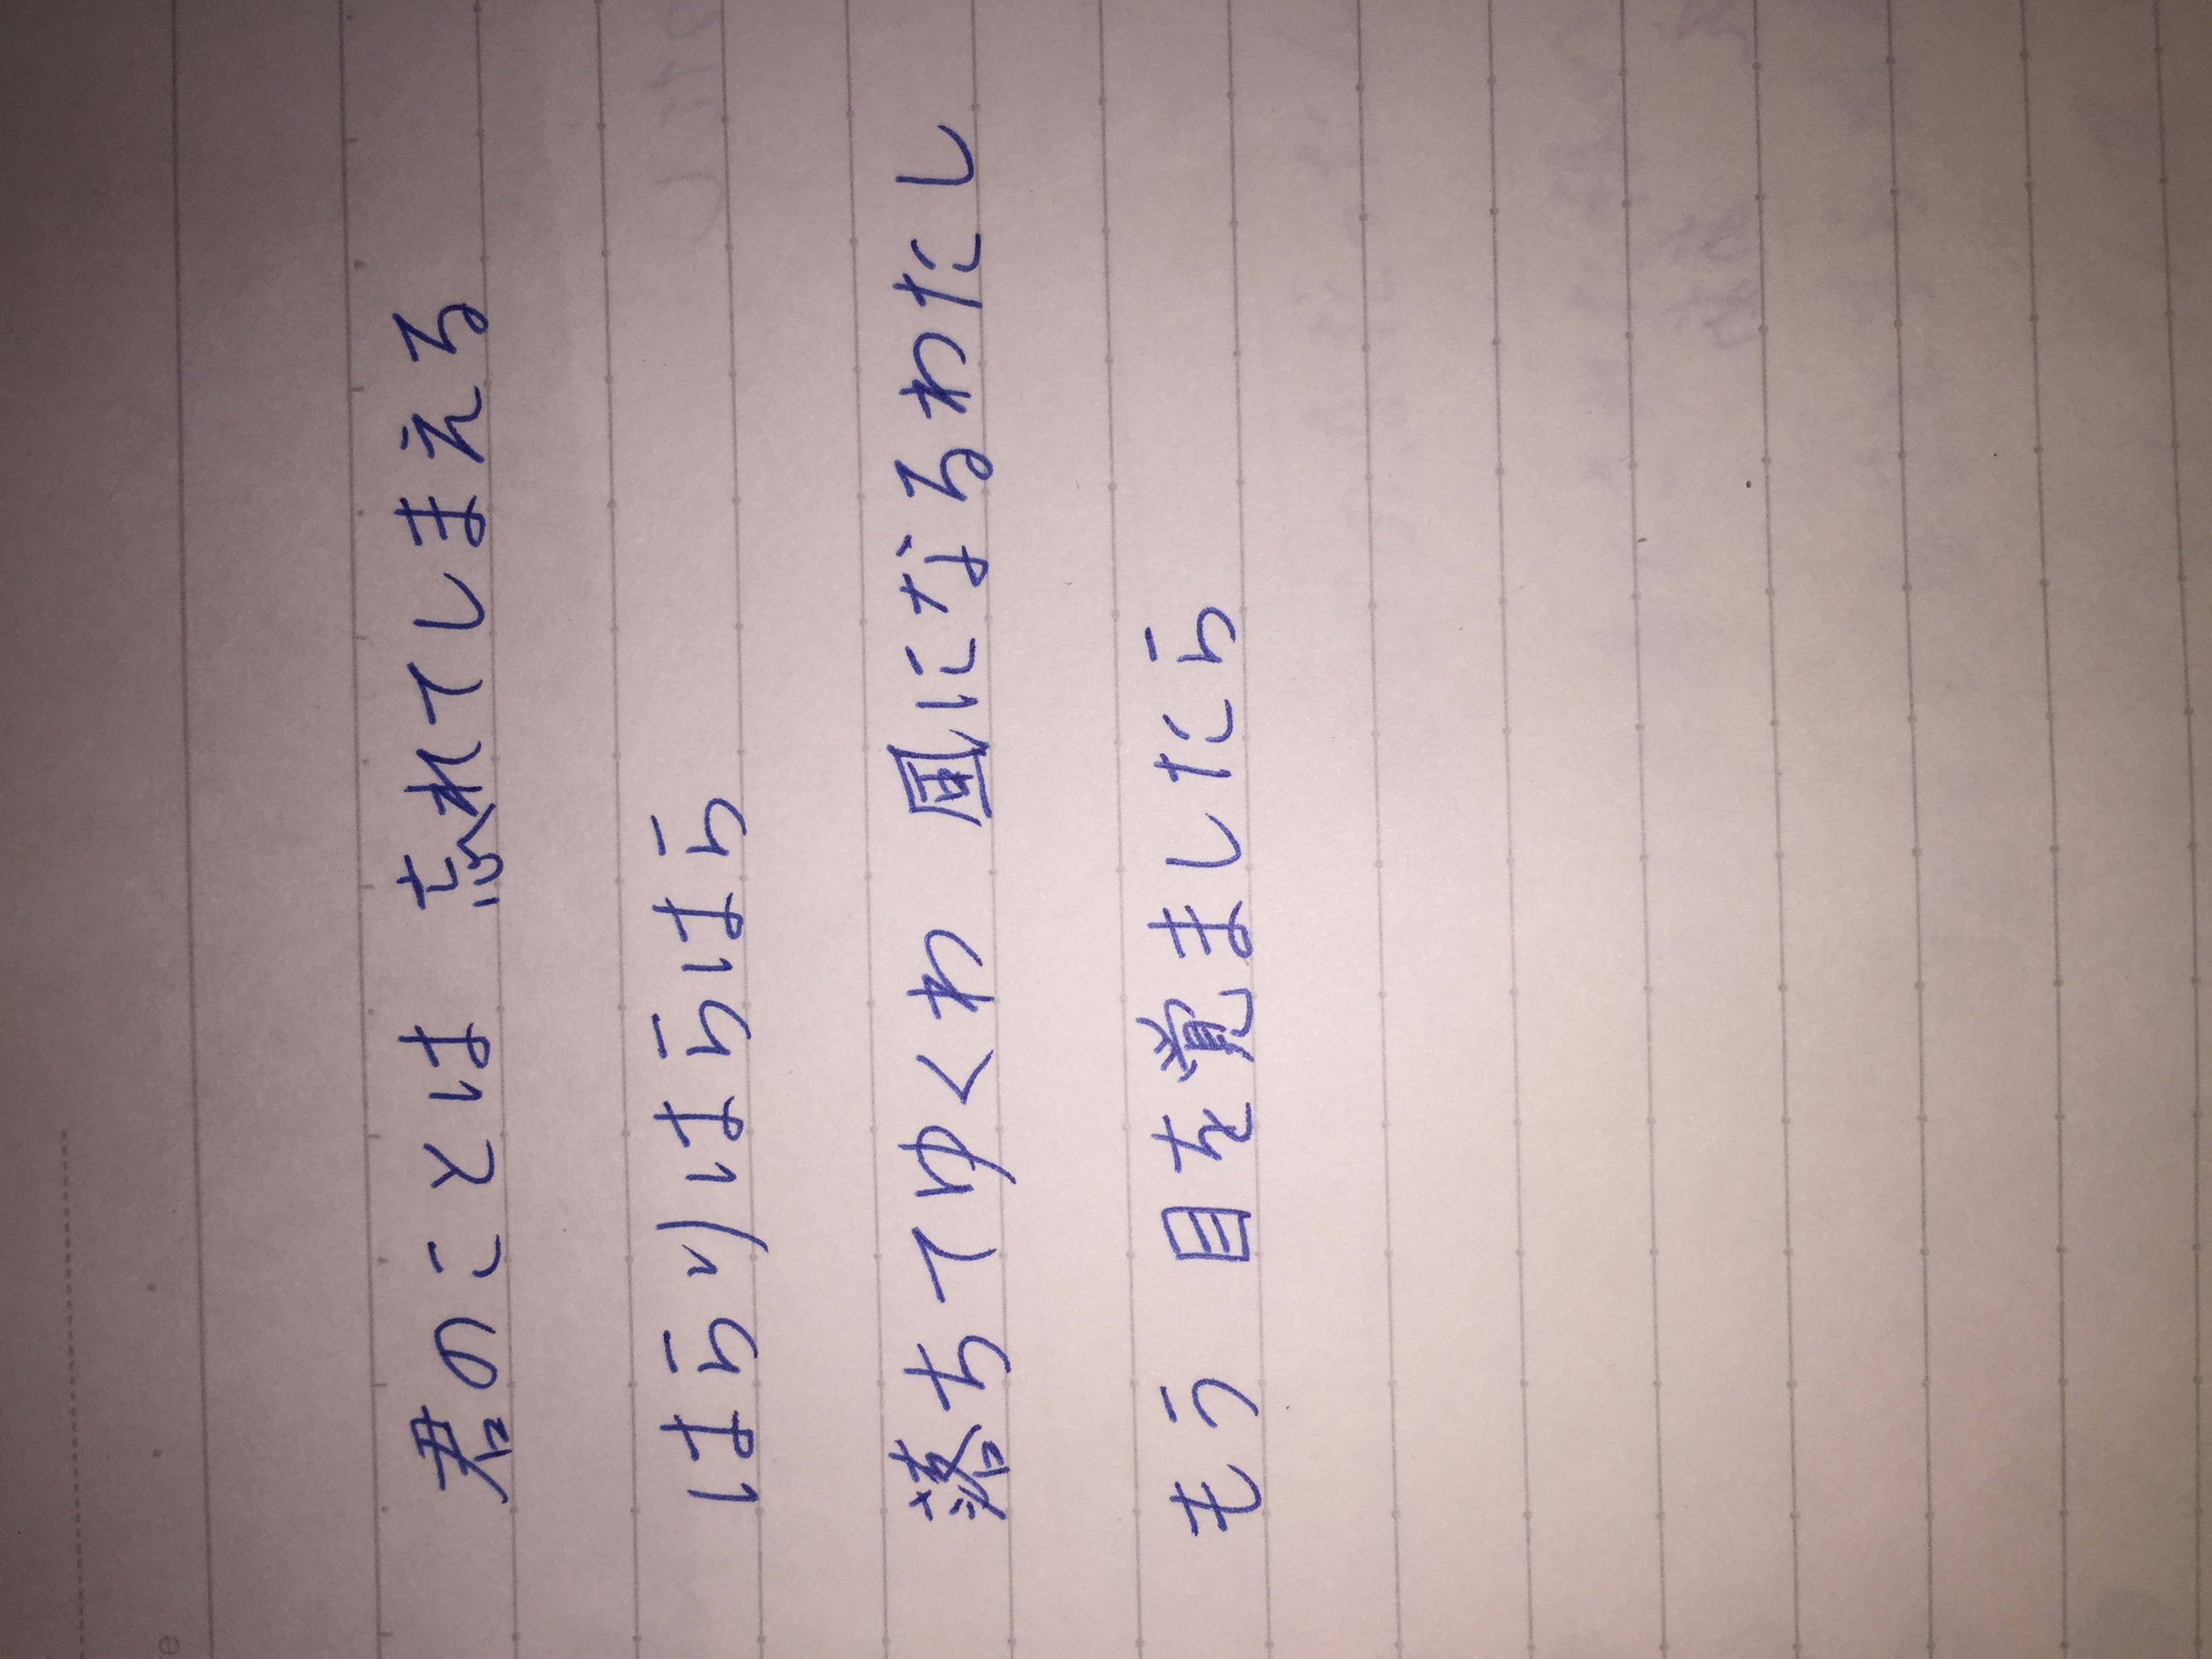 君のことは 忘れてしまえる
はらりはらはら
落ちてゆくわ 風になるわたし
もう 目を覚ましたら